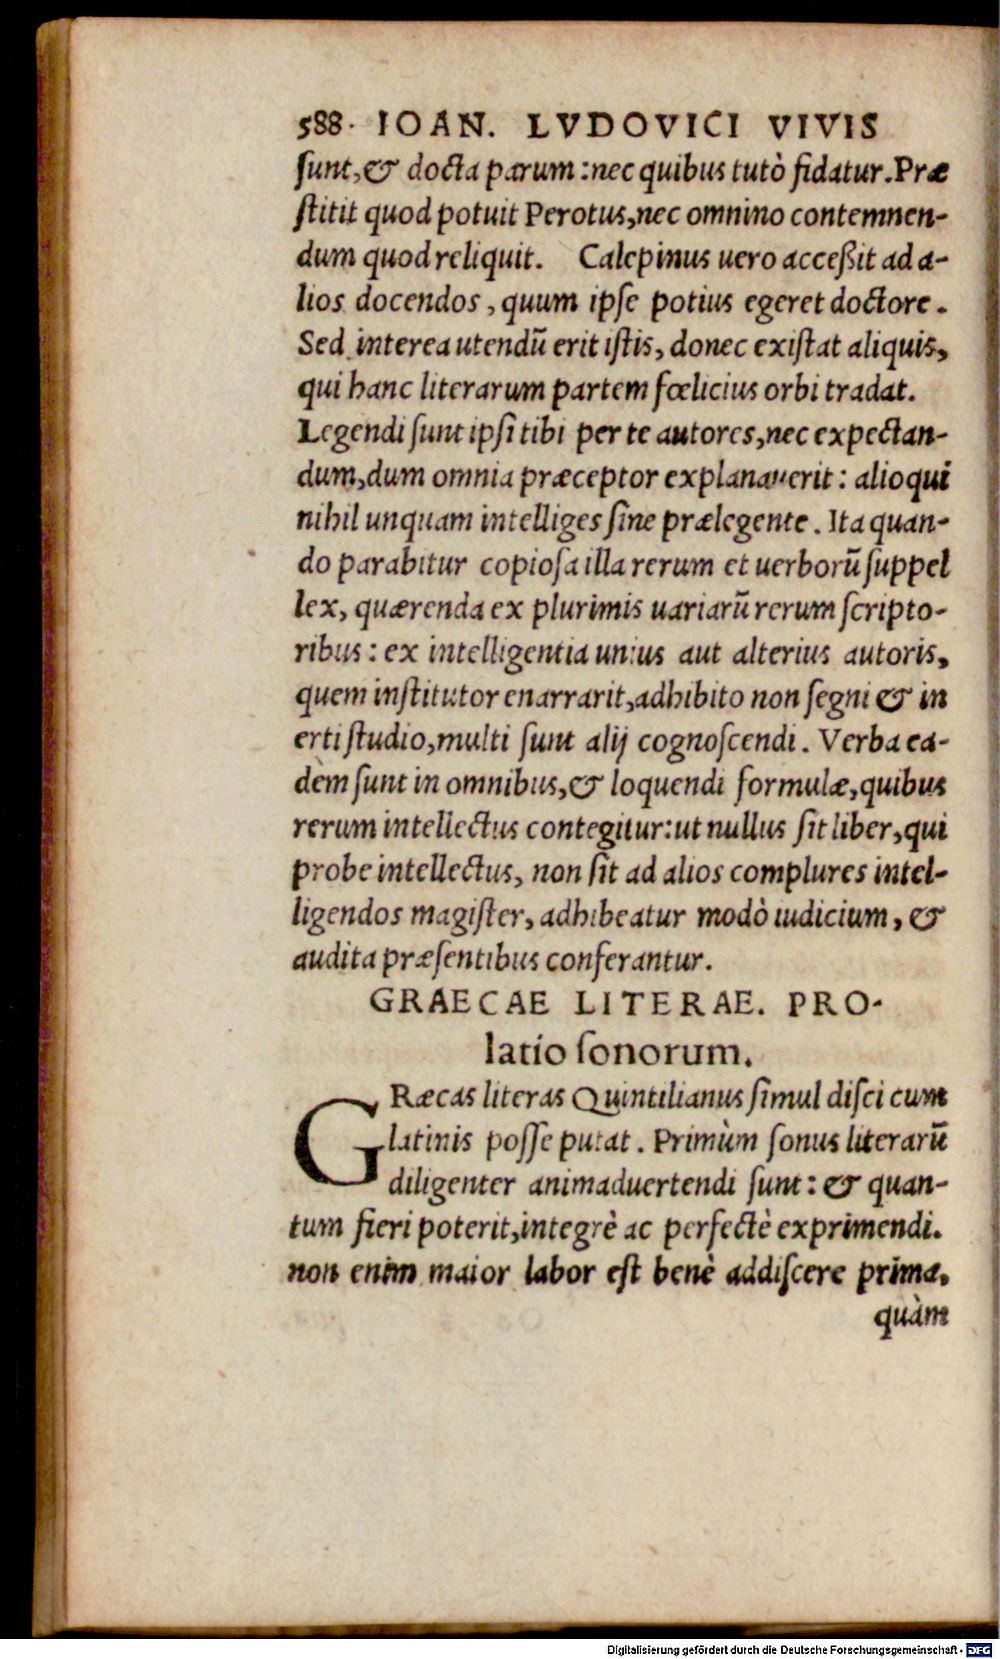 588. IOAN. LVDOVICI VIVIS
ſunt, & docta parum: nec quibus tutò fidatur. Præ
ſtitit quod potuit Perotus, nec omnino contemnen-
dum quod reliquit. Calepinus uero acceßit ad a-
lios docendos, quum ipſe potius egeret doctore.
Sed interea utendū erit iſtis, donec exiſtat aliquis,
qui hanc literarum partem fœlicius orbi tradat.
Legendi ſunt ipſi tibi per te autores, nec expectan-
dum, dum omnia præceptor explanauerit: alioqui
nihil unquam intelliges ſine prælegente. Ita quan-
do parabitur copioſa illa rerum et uerborū ſuppel
lex, quærenda ex plurimis uariarū rerum ſcripto-
ribus: ex intelligentia unius aut alterius autoris,
quem inſtitutor enarrarit, adhibito non ſegni & in
erti ſtudio, multi ſunt alij cognoſcendi. Verba ea-
dèm ſunt in omnibus, & loquendi formulæ, quibus
rerum intellectus contegitur: ut nullus ſit liber, qui
probe intellectus, non ſit ad alios complures intel-
ligendos magiſter, adhibeatur modò iudicium, &
audita præſentibus conferantur.
GRAECAE LITERAE. PRO-
latio ſonorum.
GRæcas literas Quintilianus ſimul diſci cum
latinis poſſe putat. Primùm ſonus literarū
diligenter animaduertendi ſunt: & quan-
tum fieri poterit, integrè ac perfectè exprimendi.
non enim maior labor eſt benè addiſcere prima,
quàm
Digitalisierung gefördert durch die Deutsche Forschungsgemeinschaft - DFG